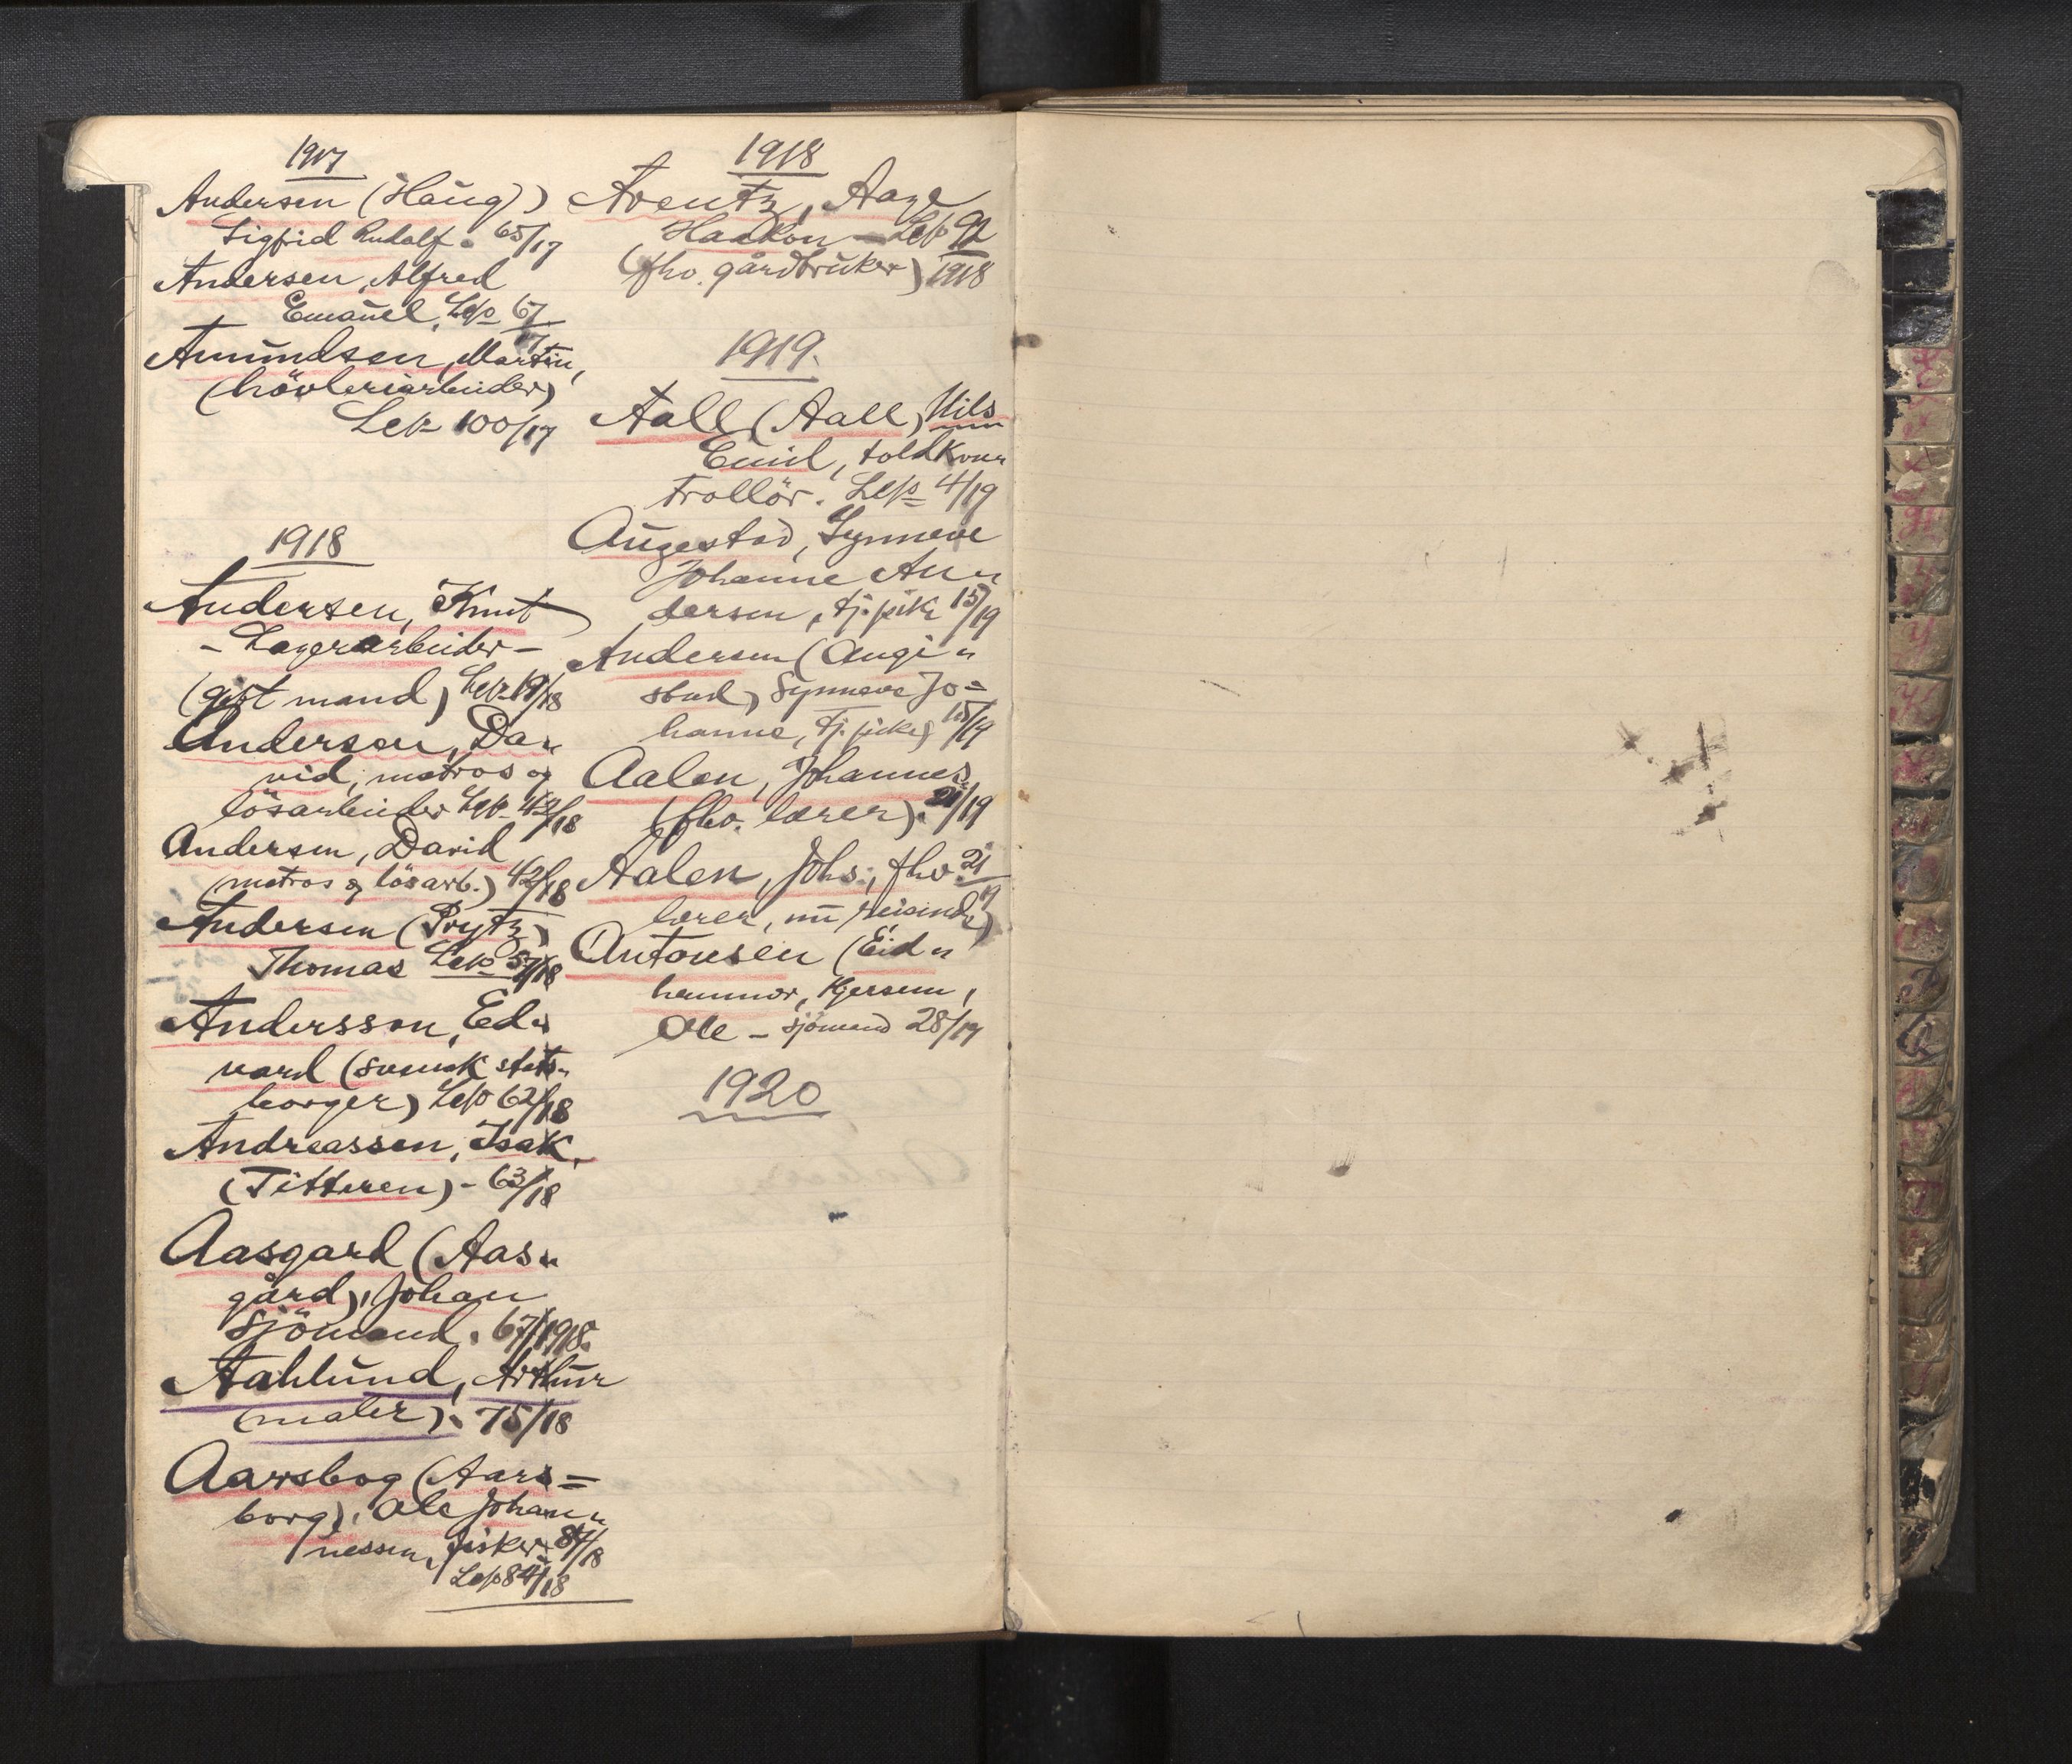 1917
Andersen (Haug)
Sigfrid Rudolf. 65/17
Andersen, Alfred
Emanuel, Lep 67/17
Amundsen, Martin,
(hövleriarbeider)
Lep 100/17
1918
Andersen, Knut
- Lagerarbeider -
(gift mand) Lep 19/18
Anderson, Da-
vid, matros og
lösarbeider Lep 42/18
Andersen, David
(matros og lösarb.) 42/18
Andersen (Prytz)
Thomas Lep 57/18
Andersson, Ed-
vard (svensk stats-
borger) Lep 62/18
Andreassen, Isak,
(Titteren) - 63/18
Aasgard (Aas-
gård), Johan
Sjömand. 67/1918.
Aahlund, Arthur
(maler). 75/18
Aarsbog (Aars=
borg), Ole Johan-
nessen, fisker 84/18
Lep 84/18
1918
Arentz, Aage
Haakon - Lep 92
(fhv. gårdbruker) 1918
1919.
Aall (Aall) Nils
Emil, toldkon-
trollör. Lep 4/19
Augestad, Synneve
Johanne An-
dersen, tj. pike 15/19
Andersen (Augi-
stad) Synneve Jo=
hanne, tj. pike) 15/19
Aalen, Johannes
(fhv. lærer). 21/19
Aalen, Johs., fhv. 21/19
lærer, nu reisende)
Antonsen (Eid-
hammer, Kjersem,
Ole - sjömand 28/19
1920